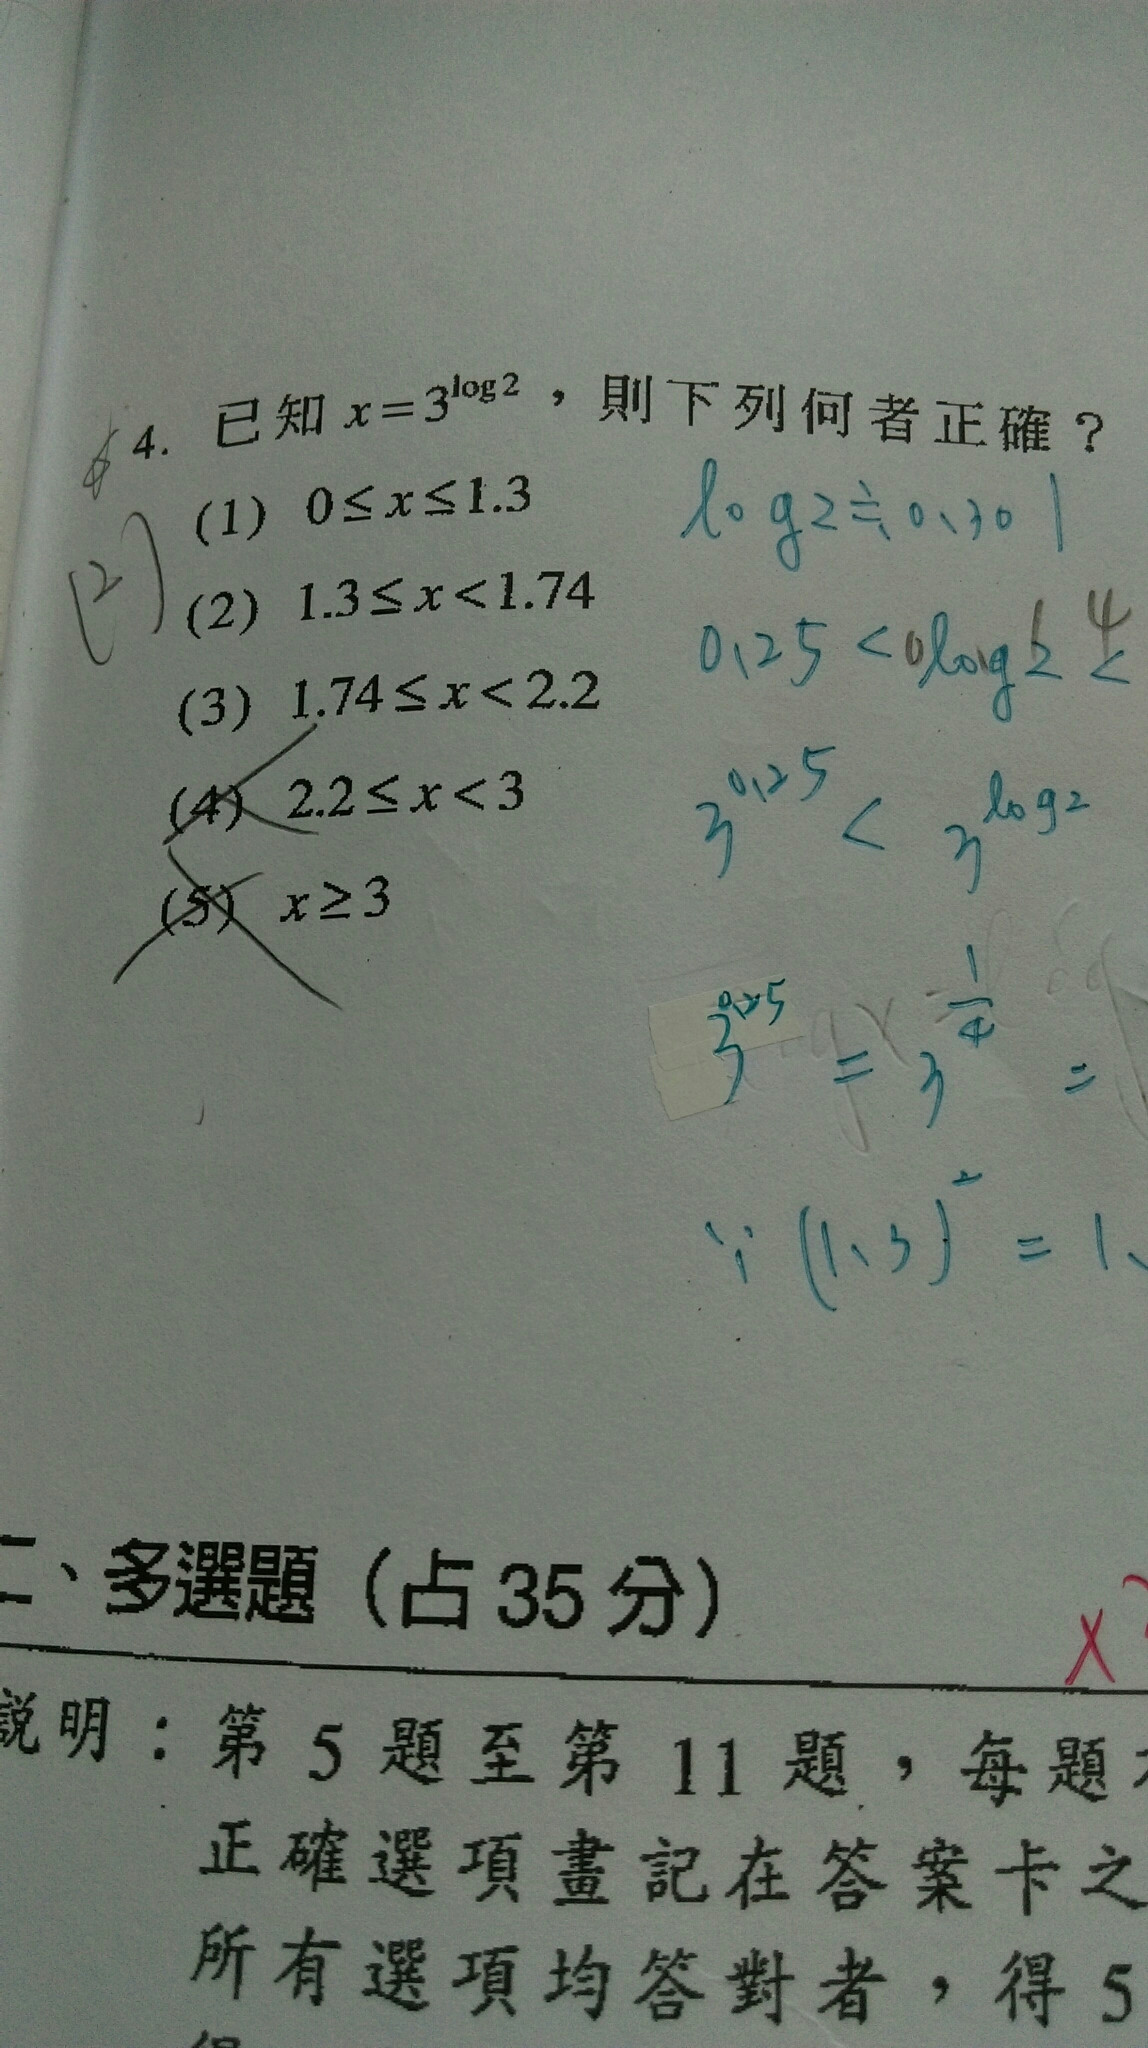 4. 已知 x=3^log2，則下列何者正確？
(1) 0≤x≤1.3
(2) 1.3≤x<1.74
(3) 1.74≤x<2.2
(4) 2.2≤x<3
(5) x≥3
(2)
log2≒0.301
0.25 < log2 <
3^0.25 < 3^log2
3^0.25 = 3^1/4 =
∵ (1.3)^2 = 1.
二、多選題（占35分）
x
說明：第5題至第11題，每題
正確選項畫記在答案卡之
所有選項均答對者，得5